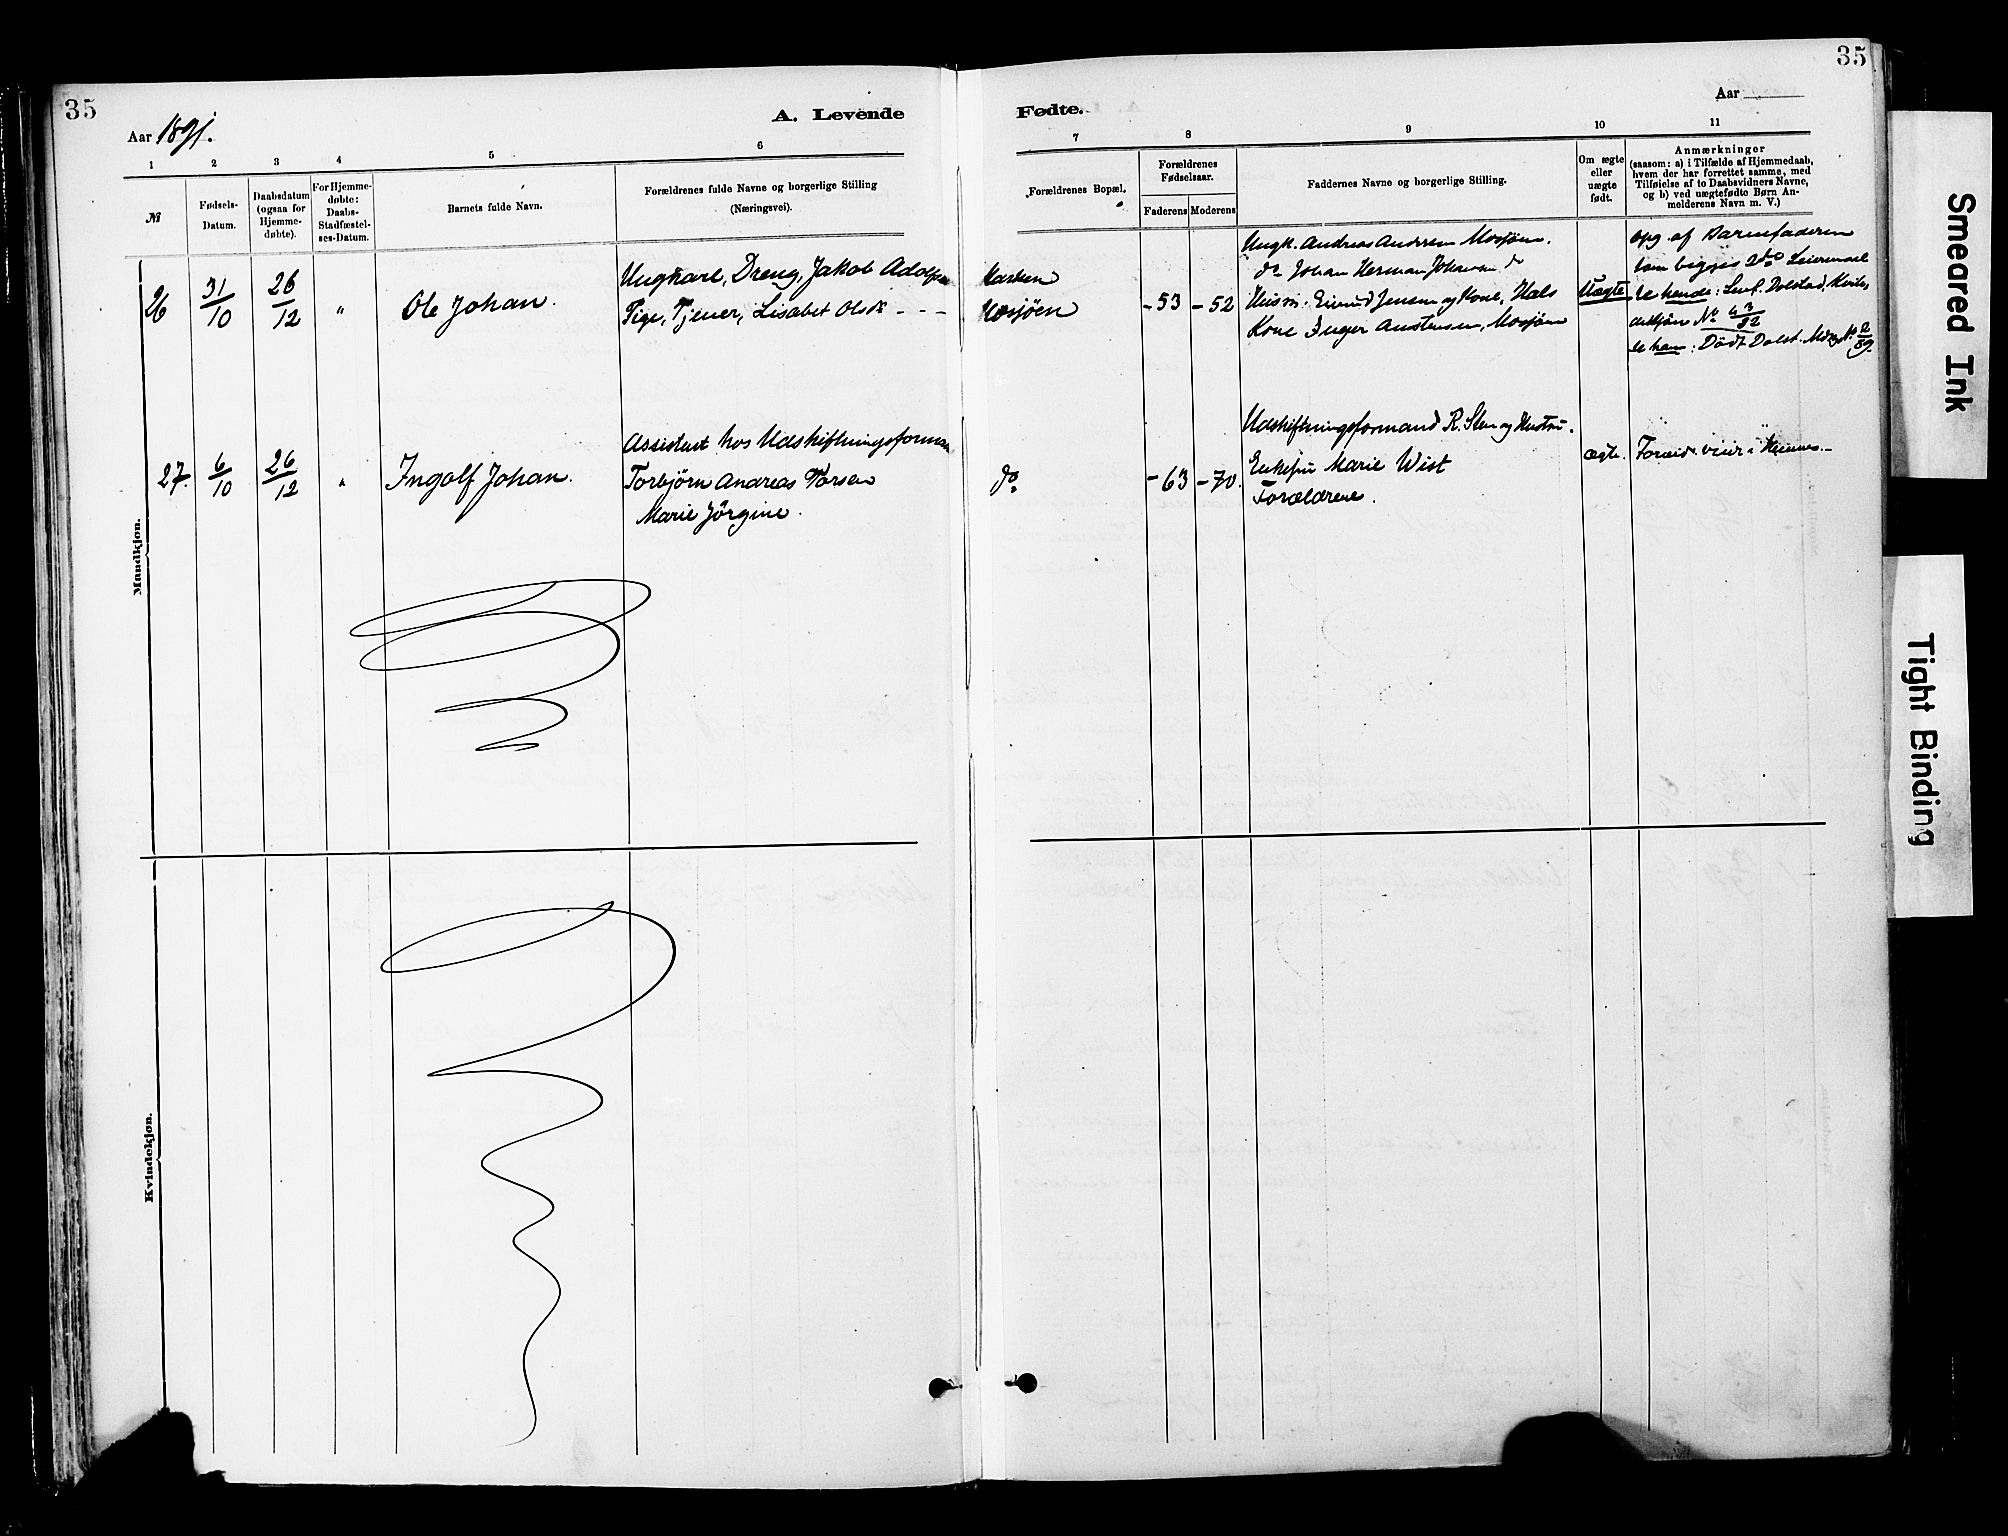 35
35
Aar 1891.
A. Levende
Fødte.
Aar
1
2
3
4
5
6
7
8
9
10
11
№
Fødsels-
Datum.
Daabsdatum
(ogsaa for
Hjemme-
døbte).
For Hjemme-
døbte:
Daabs-
Stadfæstel-
ses-Datum.
Barnets fulde Navn.
Forældrenes fulde Navne og borgerlige Stilling
(Næringsvei).
Forældrenes Bopæl.
Forældrenes
Fødselsaar.
Faderens
Moderens
Faddernes Navne og borgerlige Stilling.
Om ægte
eller
uægte
født.
Anmærkninger
(saasom: a) i Tilfælde af Hjemmedaab,
hvem der har forrettet samme, med
Tilføielse af to Daabsvidners Navne,
og b) ved uægtefødte Børn An-
melderens Navn m. V.)
Mandkjøn.
26
31/10
26/12
"
Ole Johan.
Ungkarl, Dreng, Jakob Adolfsen
Pige, Tjener, Lisabet Olsd. - - -
Mosjøen
-53
-52
Ungk. Andreas Andersen Mosjøen.
do Johan Herman Johansen do
Husm. Eivind Jensen og Kone, Hals
Kone Inger Amstensen, Mosjøen
Uægte
Opg. af Barnefaderen
som begges 2do Leiermaal
se hende: Dolstad,
№ 43/82
se ham: Døbt Dolst. № 2/89.
27.
6/10
26/12
"
Ingolf Johan.
Assistent hos Udskiftningsforman
Torbjørn Andreas Torsen
Marie Jørgine.
do
-63
-70.
Udskiftningsformand R. Sten og Hustru.
Enkefru Marie Wist
Forældrene.
ægte.
Foræld. viet i
Kvindekjøn.
Smeared Ink
Tight Binding